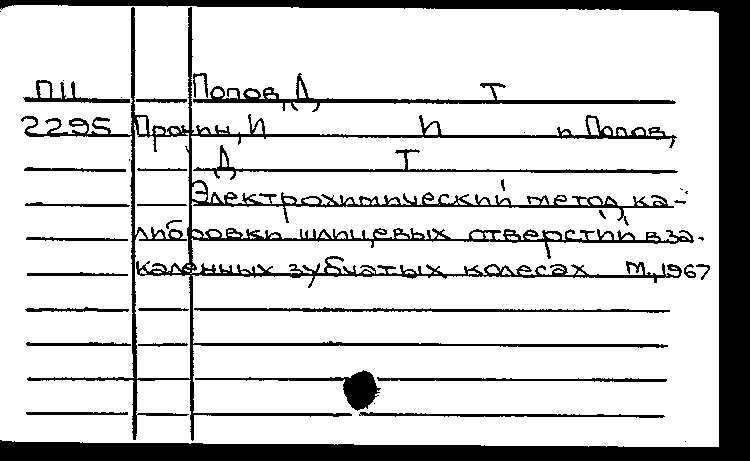 П11 Попов, Д Т
2295 Пронин, И И и Попов,
Д Т
Электрохимический метод ка-
либровки шлицевых отверстий в за-
каленных зубчатых колесах М., 1967